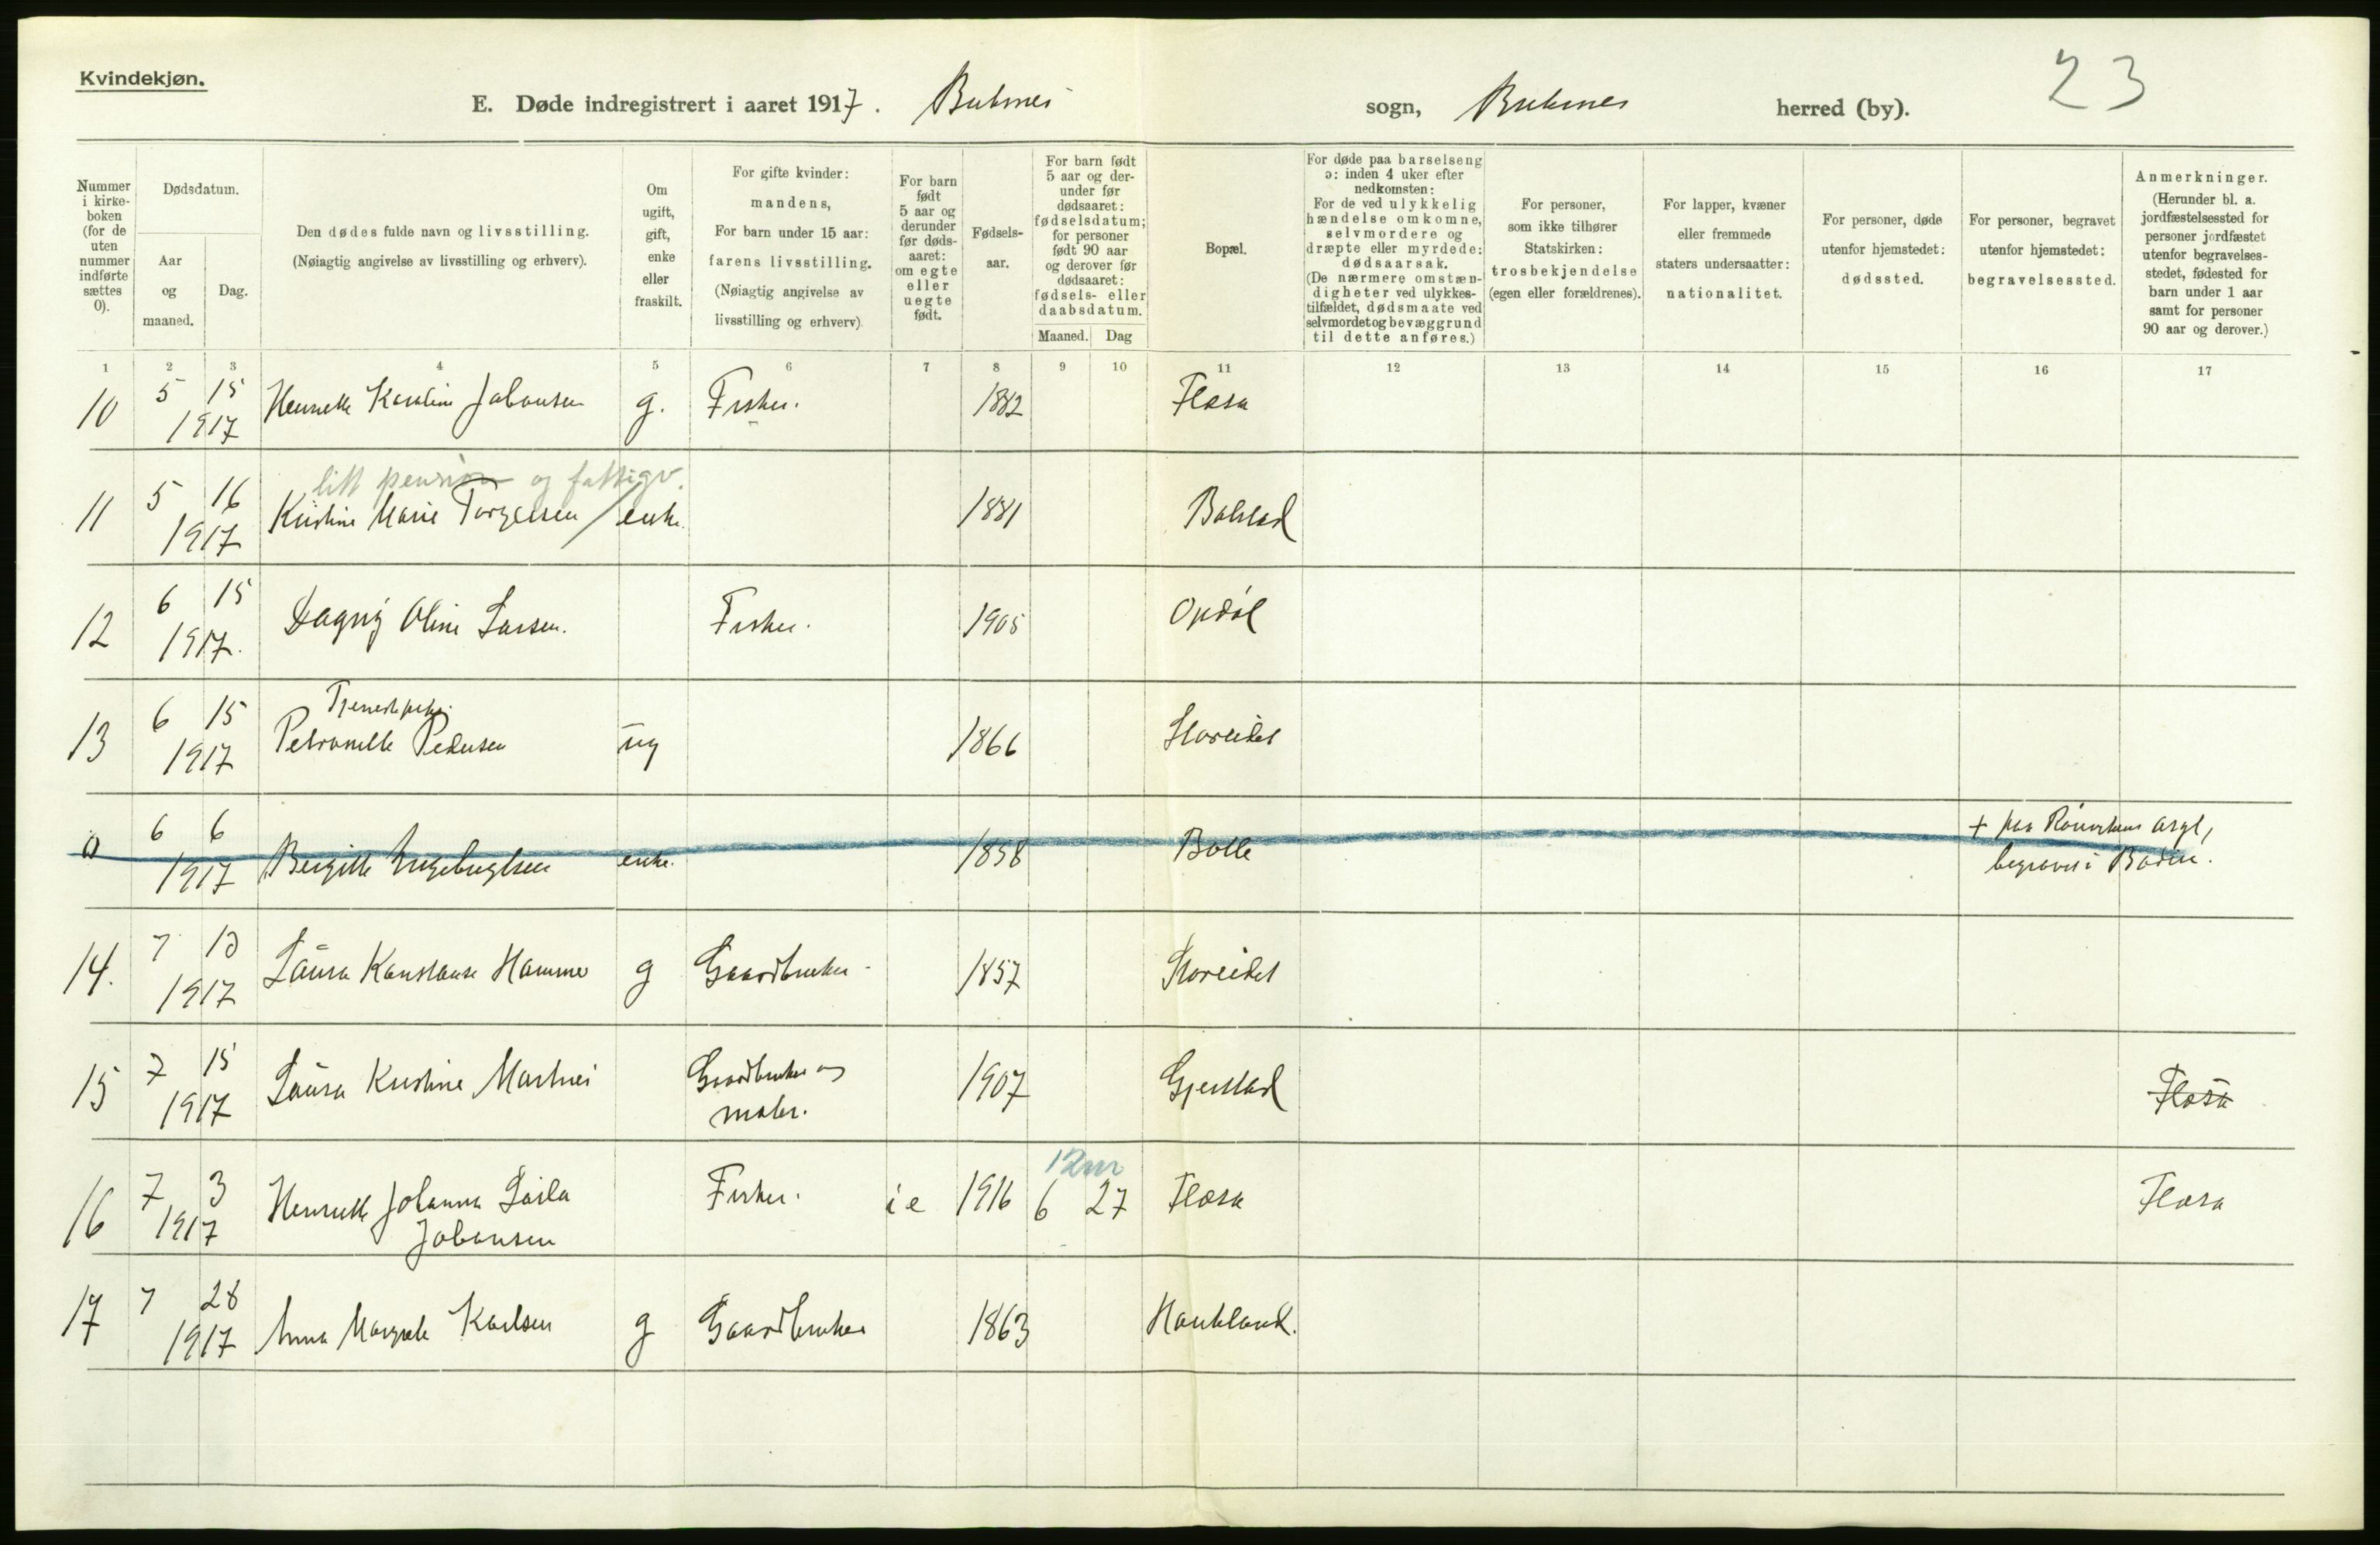 Kvindekjøn.
23
E. Døde indregistrert i aaret 1917. Buksnes sogn, Buksnes herred (by).
Nummer i kirke-boken (for de uten nummer indførte sættes 0).
Dødsdatum.
Aar og maaned.
Dag.
Den dødes fulde navn og livsstilling.
(Nøiagtig angivelse av livsstilling og erhverv).
Om ugift, gift, enke eller fraskilt.
For gifte kvinder: mandens,
For barn under 15 aar: farens livsstilling.
(Nøiagtig angivelse av livsstilling og erhverv)
For barn født 5 aar og derunder før døds-aaret: om egte eller uegte født.
Fødsels-aar.
For barn født 5 aar og der-under før dødsaaret: fødselsdatum; for personer født 90 aar og derover før dødsaaret: fødsels- eller daabsdatum.
Maaned. Dag
Bopæl.
For døde paa barselseng ɔ: inden 4 uker efter nedkomsten:
For de ved ulykkelig hændelse omkomne, selvmordere og dræpte eller myrdede: dødsaarsak.
(De nærmere omstæn-digheter ved ulykkes-tilfældet, dødsmaate ved selvmordet og bevæggrund til dette anføres.)
For personer, som ikke tilhører Statskirken: trosbekjendelse (egen eller forældrenes).
For lapper, kvæner eller fremmede staters undersaatter: nationalitet.
For personer, døde utenfor hjemstedet: dødssted.
For personer, begravet utenfor hjemstedet: begravelsessted.
Anmerkninger.
(Herunder bl. a. jordfæstelsessted for personer jordfæstet utenfor begravelses-stedet, fødested for barn under 1 aar samt for personer 90 aar og derover.)
1 2 3 4 5 6 7 8 9 10 11 12 13 14 15 16 17
10 5 1917 15 Henrikke Karoline Johansen g. Fisker. 1882 Flæsa
litt pension og fattigv.
11 5 1917 16 Kristine Marie Torgersen / enke. 1881 Balstad
12 6 1917. 15 Dagny Oline Larsen. Fisker. 1905 Opdøl
13 6 1917 15 Tjenestepike. Petronelle Pedersen ug 1866 Storeidet
0 6 1917 6 Bergitte Engebregtsen enke. 1858 Bolle + paa Rønvikens asyl, begravet i Bodin.
14. 7 1917 10 Laura Konstanse Hammer g Gaardbruker 1857 Storeidet
15 7 1917 15 Laura Kristine Martnes Gaardbruker og maler. 1907 Gjerstad Flæsa
12m
16 7 1917 3 Henrikke Johanna Laila Johansen Fisker. i e 1916 6 27 Flæsa Flæsa
17 7 1917 28 Anna Margrete Karlsen g Gaardbruker 1863 Haukland.